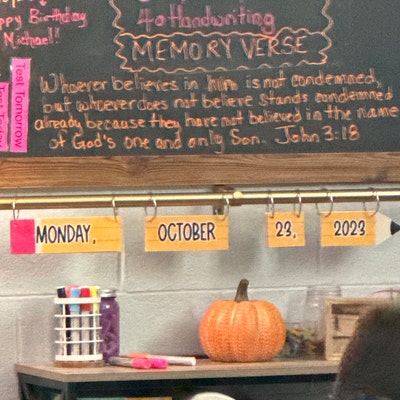 ppy Birthday
Michael!!
4a Handwriting
MEMORY VERSE
Test Tomorrow
Test Today
Whoever believes in him is not condemned,
but whoever does not believe stands condemned
already because they have not believed in the name
of God's one and only Son. John 3:18
MONDAY, OCTOBER 23, 2023